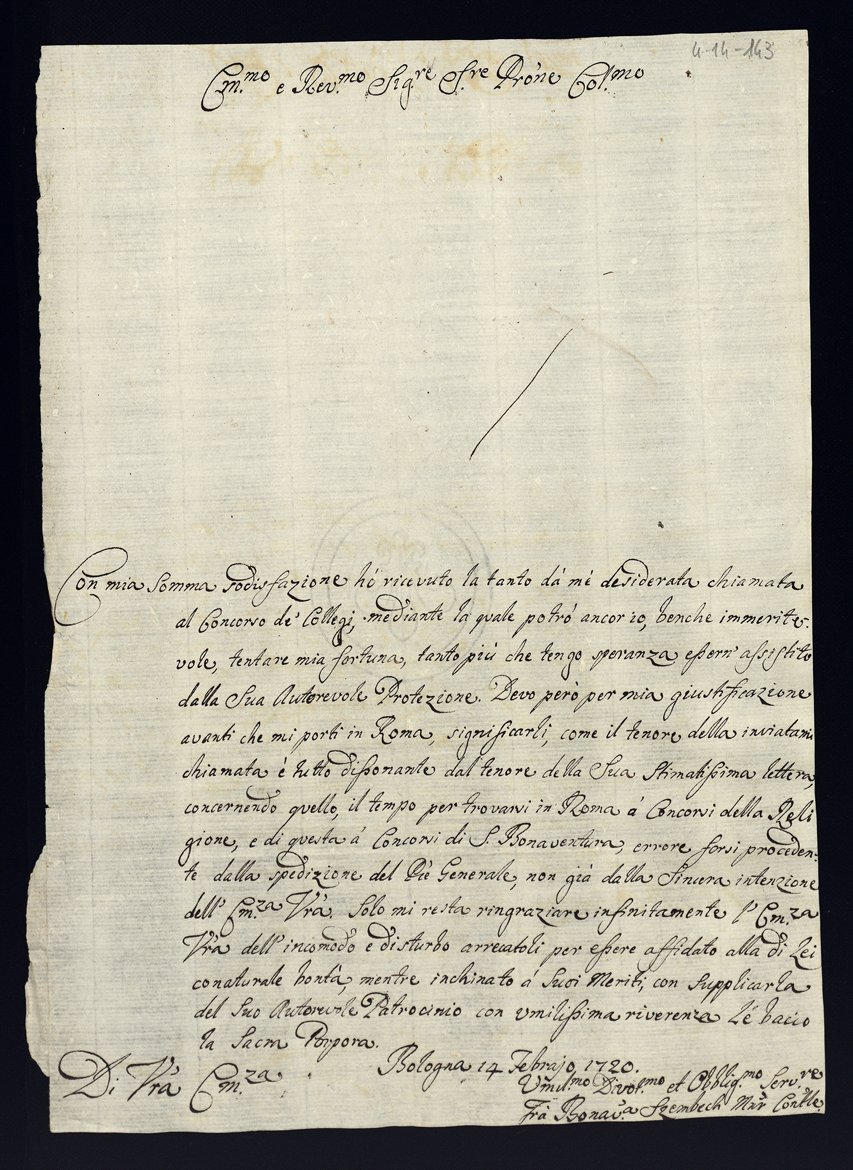 4-14-143
Em.mo e Rev.mo Sig.re S.re Prone Col.mo
Con mia somma sodisfazione hò ricevuto la tanto dà mè desiderata chiamata
al Concorso de' Collegi, mediante la quale potrò ancor io, benche immerite-
vole, tentare mia fortuna, tanto più che tengo speranza essern' assistito
dalla Sua Autorevole Protezione. Devo però per mia giustificazione
avanti che mi porti in Roma, significarli, come il tenore della inviatami
chiamata è tutto dissonante dal tenore della Sua Stimatissima lettera,
concernendo quello, il tempo per trovarsi in Roma à Concorsi della Reli
gione, e di questa à Concorsi di S. Bonaventura, errore forsi proceden-
te dalla spedizione del Pre Generale, non già dalla Sincera intenzione
dell' Em.za Vrà. Solo mi resta ringraziare infinitamente l' Em.za
Vrà dell' incomodo e disturbo arrecatoli per essere affidato alla di Lei
conaturale bontà, mentre inchinato à Suoi Meriti, con supplicarla
del Suo Autorevole Patrocinio con umilissima riverenza Le bacio
la Sacra Porpora.
Bologna 14 Febrajo, 1720.
Di Vrà Em.za
Umil.mo Divot.mo et Obblig.mo Serv.re
Frà Bonav.a Szembech Min.r Con.le